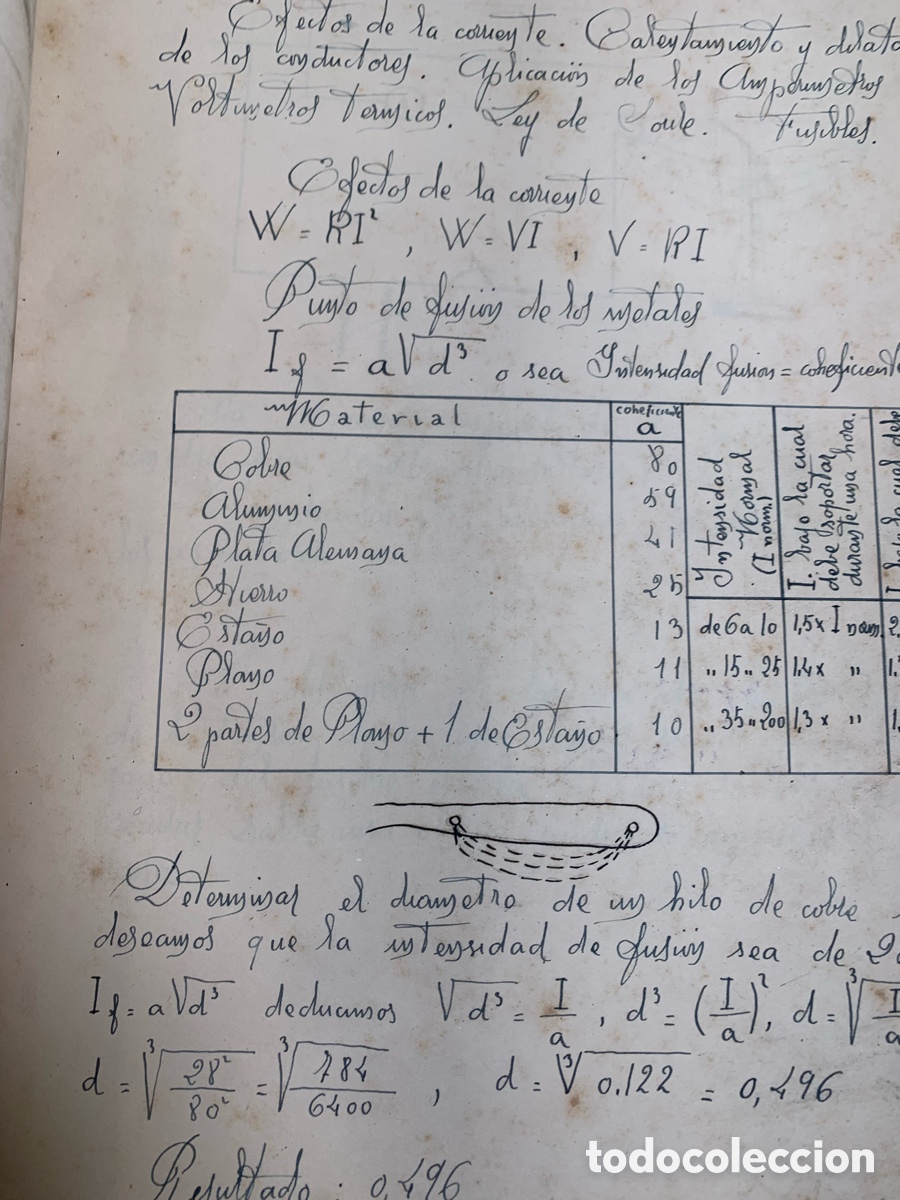 Efectos de la corriente. Calentamiento y dilata
de los conductores. Aplicación de los Amperimetros
Voltimetros termicos. Ley de Joule. Fusibles.
Efectos de la corriente
W = RI² , W = VI , V = RI
Punto de fusión de los metales
I f = a√d³ o sea Intensidad fusion = coheficiente
Material coheficiente a Intensidad Normal (I norm.) I. bajo la cual debe soportar durante una hora.
Cobre 80
Aluminio 59
Plata Alemana 41
Hierro 25
Estaño 13 de 6 a 10 1,5 x I nom. 2
Plomo 11 „ 15 „ 25 1.4 x „ 1.
2 partes de Plomo + 1 de Estaño 10 „ 35 „ 200 1,3 x „ 1,
Determinar el diametro de un hilo de cobre
deseamos que la intensidad de fusión sea de 2
I f = a√d³ deducimos √d³ = I/a , d³ = (I/a)², d = ³√I/a
d = ³√28²/80² = ³√784/6400 , d = ³√0.122 = 0,496
Resultado : 0,496
todocoleccion